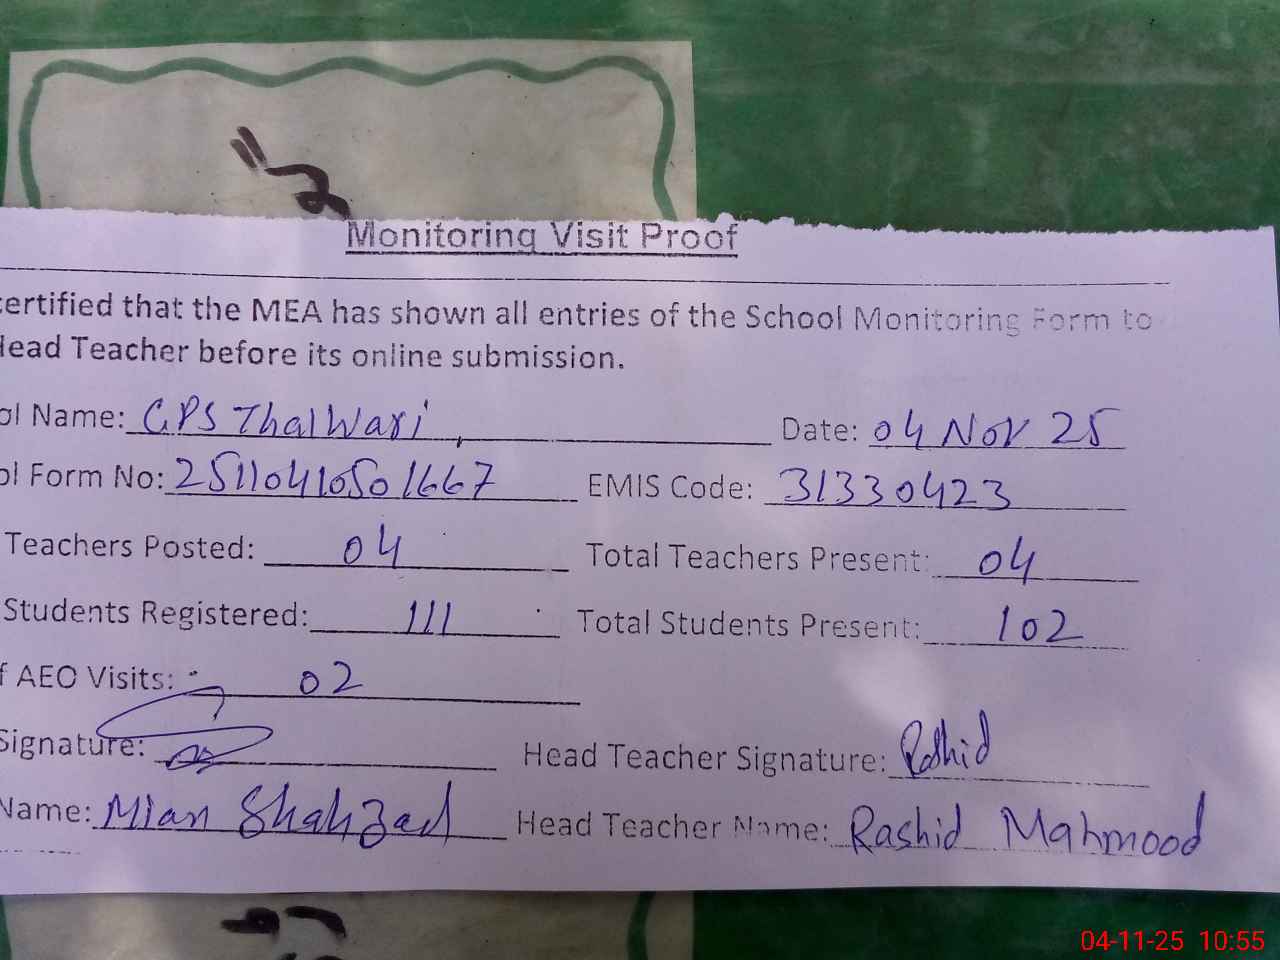 Monitoring Visit Proof
certified that the MEA has shown all entries of the School Monitoring Form to
Head Teacher before its online submission.
ol Name: GPS Thalwari Date: 04 Nov 25
ol Form No: 25110410501667 EMIS Code: 31330423
Teachers Posted: 04 Total Teachers Present: 04
Students Registered: 111 Total Students Present: 102
f AEO Visits: 02
Signature: Head Teacher Signature: Rashid
Name: Mian Shahzad Head Teacher Name: Rashid Mahmood
04-11-25 10:55